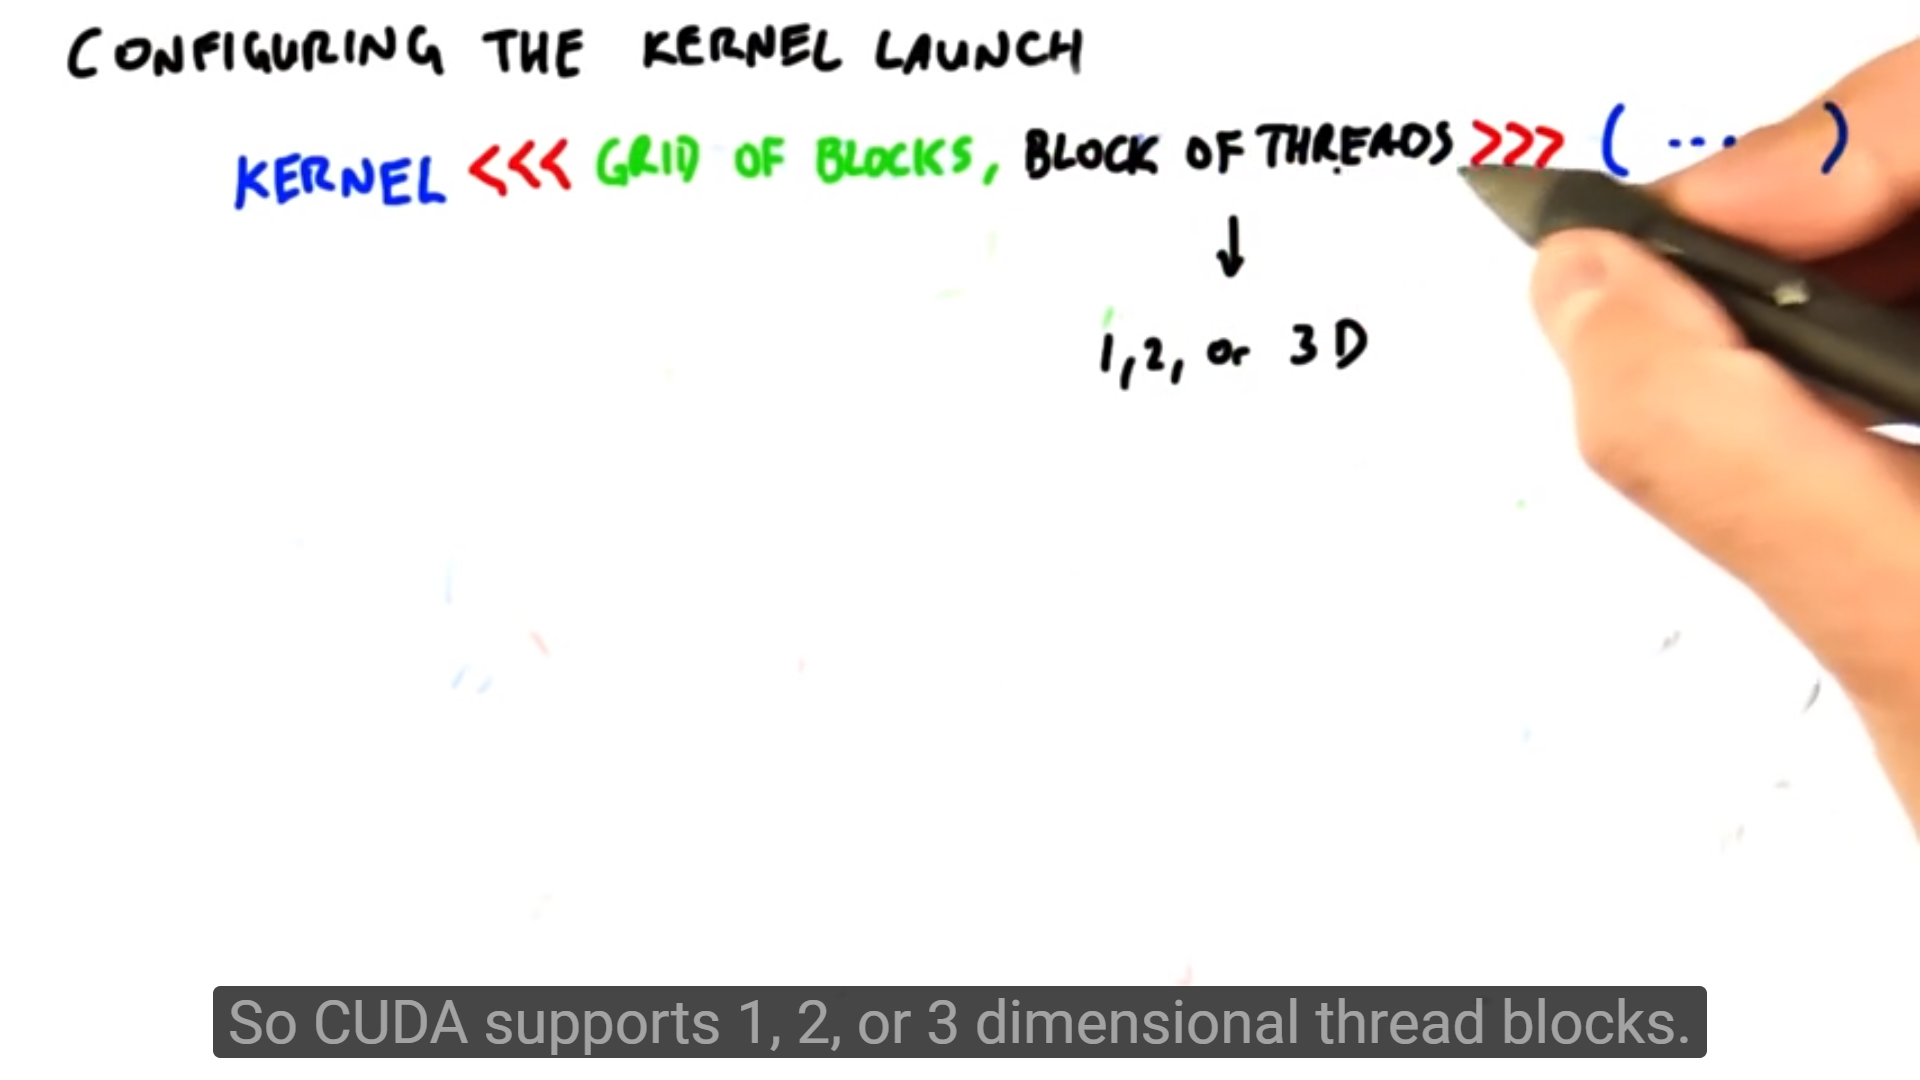 CONFIGURING THE KERNEL LAUNCH
KERNEL <<< GRID OF BLOCKS, BLOCK OF THREADS >>> ( ... )
↓
1, 2, or 3D
So CUDA supports 1, 2, or 3 dimensional thread blocks.